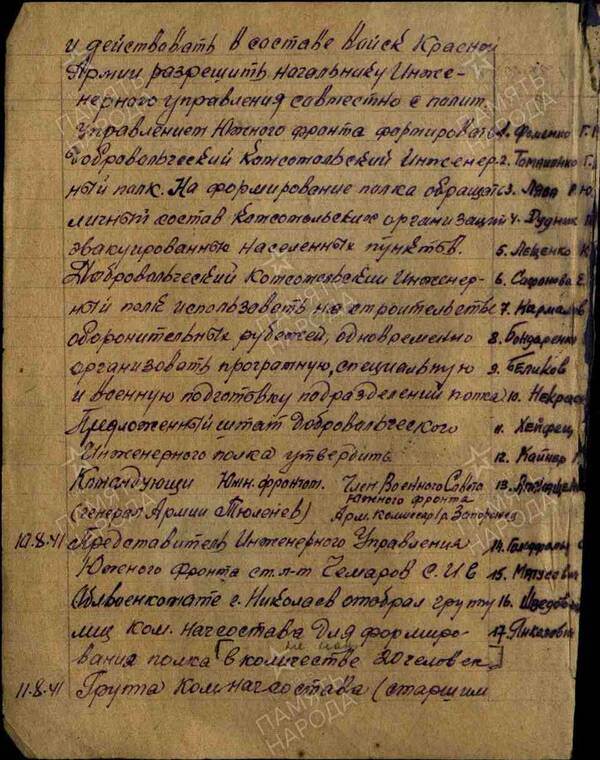 и действовать в составе войск Красной
Армии разрешить начальнику Инже-
нерного управления совместно с полит.
управлением Южного фронта формировать
добровольческий комсомольский Инженер-
ный полк. На формирование полка обращать
личный состав комсомольских организаций
эвакуированных населенных пунктов.
Добровольческий комсомольский Инженер-
ный полк использовать на строительстве
оборонительных рубежей, одновременно
организовать програмную, специальную
и военную подготовку подразделений полка
Предложенный штат Добровольческого
Инженерного полка утвердить
Командующи Южн. фронтом.
(генерал Армии Тюленев)
Член Военного Совета
Южного фронта
Арм. комиссар I р. Запорожец
10.8.41 Представитель Инженерного Управления
Южного фронта ст. л-т Чемаров С.И в
Облвоенкомате г. Николаев отобрал группу
лиц ком. начсостава для формиро-
вания полка [в количестве 20 человек]
11.8.41 Группа комначсостава (старшим
1. Фоменко Г.
2. Г.
3. Ляса
4. Дудник
5. Лещенко К
6. Сафонова Е.
7.
8. Бондаренко
9. Беликов
10. Некрас
11. Хейфец
12. Кайнер
13.
14.
15. Матусевич
16.
17. Янковский
ПАМЯТЬ НАРОДА
ПАМЯТЬ НАРОДА
ПАМЯТЬ НАРОДА
ПАМЯТЬ НАРОДА